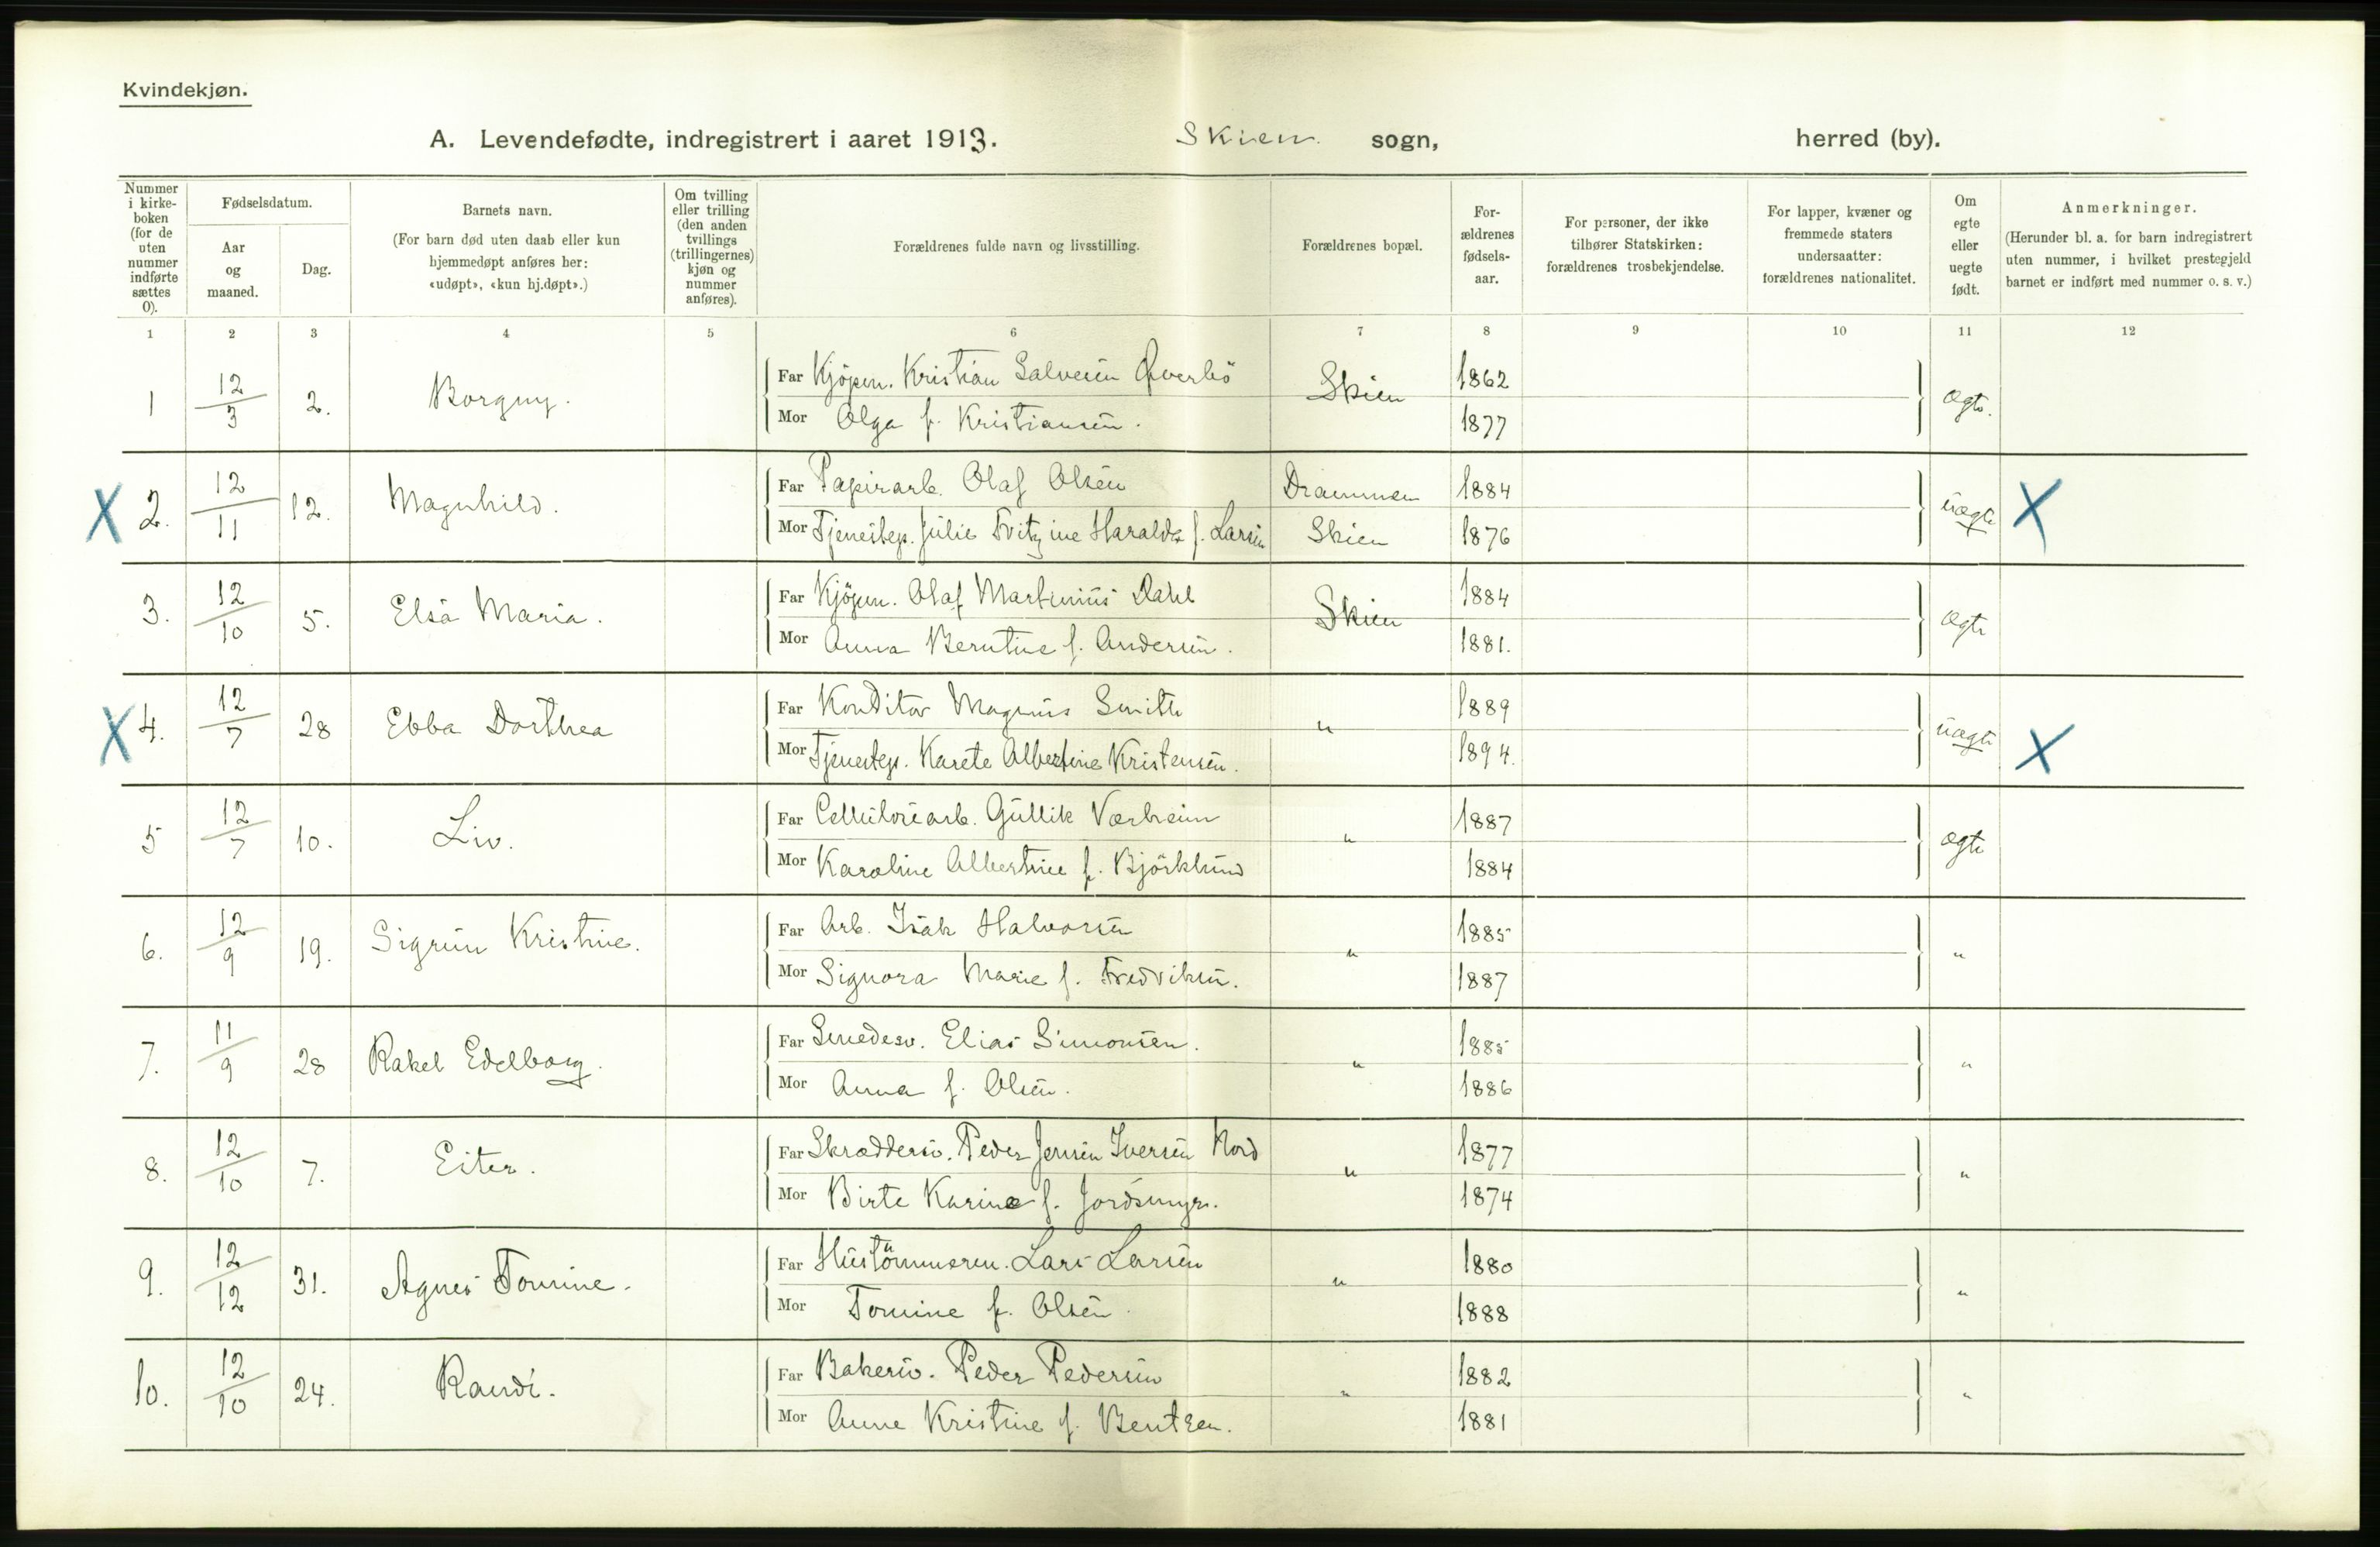 Kvindekjøn.
A. Levendefødte, indregistrert i aaret 1913. Skien sogn, herred (by).
Nummer i kirke-boken (for de uten nummer indførte sættes 0).
Fødselsdatum.
Aar og maaned.
Dag.
Barnets navn.
(For barn død uten daab eller kun hjemmedøpt anføres her: «udøpt», «kun hj.døpt».)
Om tvilling eller trilling (den anden tvillings (trillingernes) kjøn og nummer anføres).
Forældrenes fulde navn og livsstilling.
Forældrenes bopæl.
For-ældrenes fødsels-aar.
For personer, der ikke tilhører Statskirken: forældrenes trosbekjendelse.
For lapper, kvæner og fremmede staters undersaatter: forældrenes nationalitet.
Om egte eller uegte født.
Anmerkninger.
(Herunder bl. a. for barn indregistrert uten nummer, i hvilket prestegjeld barnet er indført med nummer o. s. v.)
1 2 3 4 5 6 7 8 9 10 11 12
1 12/3 2. Borgny. Far Kjøpm. Kristian Salvesen Øverbö Skien 1862 ægte.
Mor Olga f. Kristiansen. 1877
X 2. 12/11 12. Magnhild. Far Papirarb. Olaf Olsen Drammen 1884 uægte X
Mor Tjenestep. Julie Fritzine Haralda f. Larsen Skien 1876
3. 12/10 5. Elsa Maria. Far Kjöpm. Olaf Martinius Dahl Skien 1884 ægte
Mor Anna Berntine f. Andersen. 1881.
X 4. 12/7 28 Ebba Dorthea Far Konditor Magnus Smith " 1889 uægte X
Mor Tjenestep. Karete Albertine Kristensen. 1894.
5 12/7 10. Liv. Far Cellulosearb. Gullik Værheim " 1887 ægte
Mor Karoline Albertine f. Björklund 1884
6. 12/9 19. Sigrun Kristine. Far Arb. Isak Halvorsen " 1885 "
Mor Signora Marie f. Fredriksen. 1887
7. 11/9 28 Rakel Edelborg. Far Smedesv. Elias Simonsen. " 1885 "
Mor Anna f. Olsen. 1886
8. 12/10 7. Eiter. Far Skræddersv. Peder Jensen Iversen Nord " 1877 "
Mor Birte Karine f. Jordsmyr. 1874
9. 12/12 31. Agnes Tomine. Far Hustömmerm. Lars Larsen " 1880 "
Mor Tomine f. Olsen. 1888
10. 12/10 24. Randi. Far Bakersv. Peder Pedersen " 1882 "
Mor Anne Kristine f. Bentzen. 1881